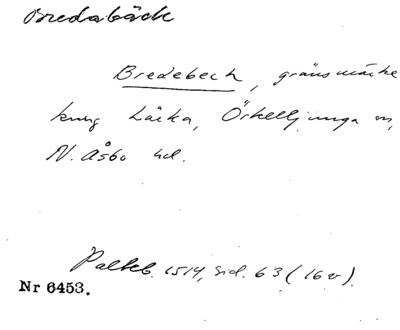 Bredabäck
Bredebech, gränsmärke
kring Läska, Örkelljunga sn,
N. Åsbo hd.
Palteb. 1514, sid. 63 (16v).
Nr 6453.